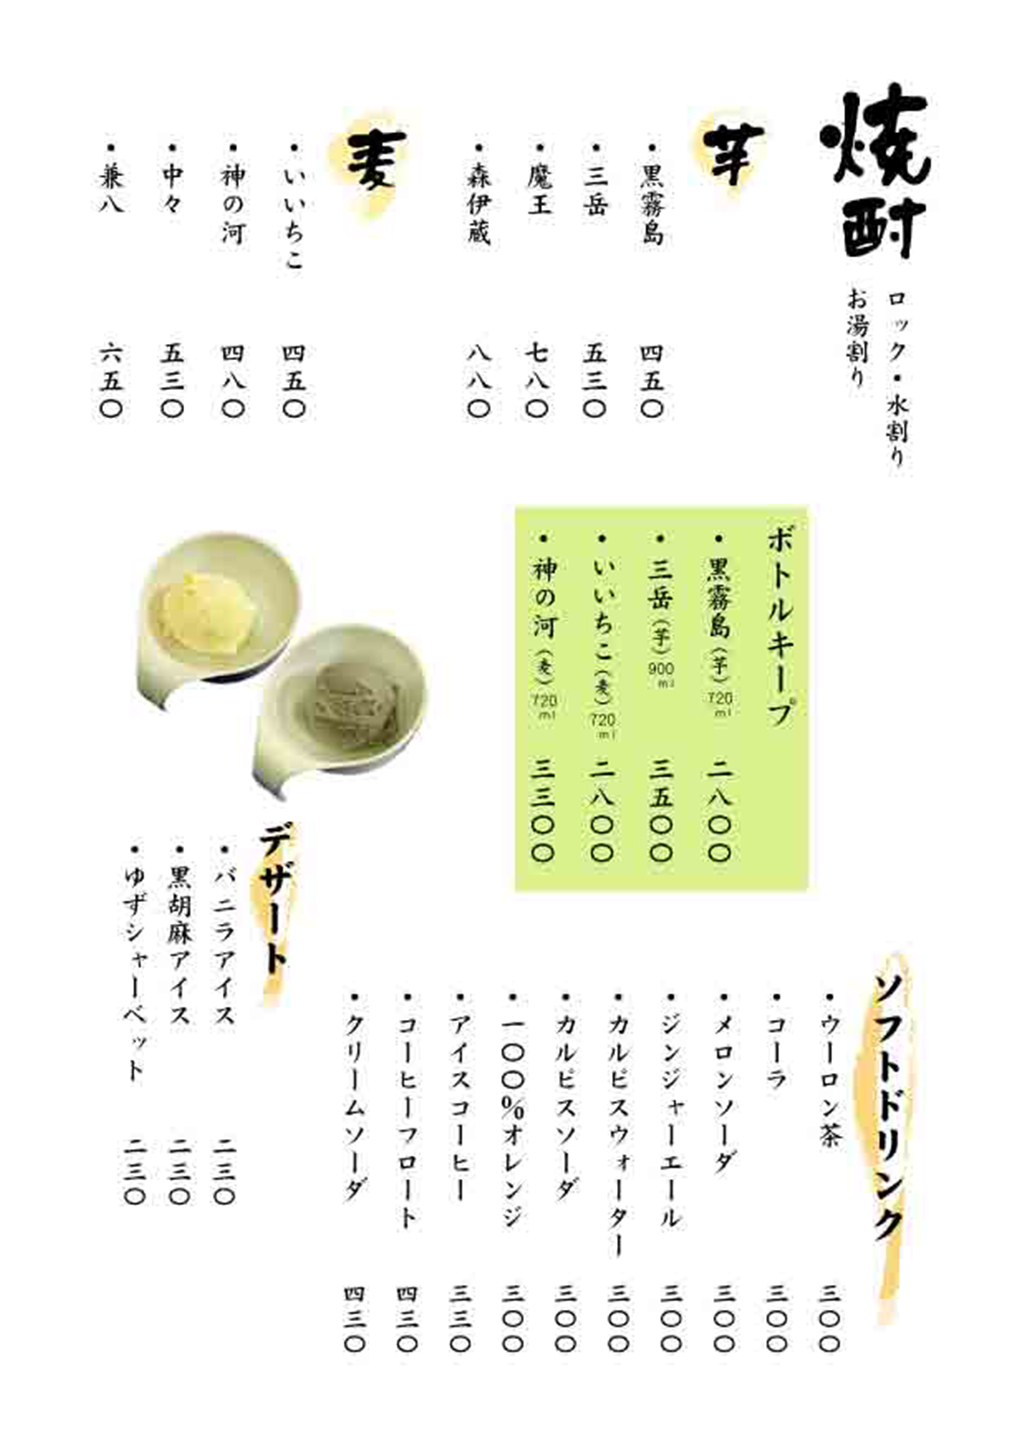 焼酎
ロック・水割り
お湯割り
芋
・黒霧島 四五〇
・三岳 五三〇
・魔王 七八〇
・森伊蔵 八八〇
麦
・いいちこ 四五〇
・神の河 四八〇
・中々 五三〇
・兼八 六五〇
ボトルキープ
・黒霧島（芋）720ml 二八〇〇
・三岳（芋）900ml 三五〇〇
・いいちこ（麦）720ml 二八〇〇
・神の河（麦）720ml 三三〇〇
ソフトドリンク
・ウーロン茶 三〇〇
・コーラ 三〇〇
・メロンソーダ 三〇〇
・ジンジャーエール 三〇〇
・カルピスウォーター 三〇〇
・カルピスソーダ 三〇〇
・一〇〇%オレンジ 三〇〇
・アイスコーヒー 三三〇
・コーヒーフロート 四三〇
・クリームソーダ 四三〇
デザート
・バニラアイス 二三〇
・黒胡麻アイス 二三〇
・ゆずシャーベット 二三〇